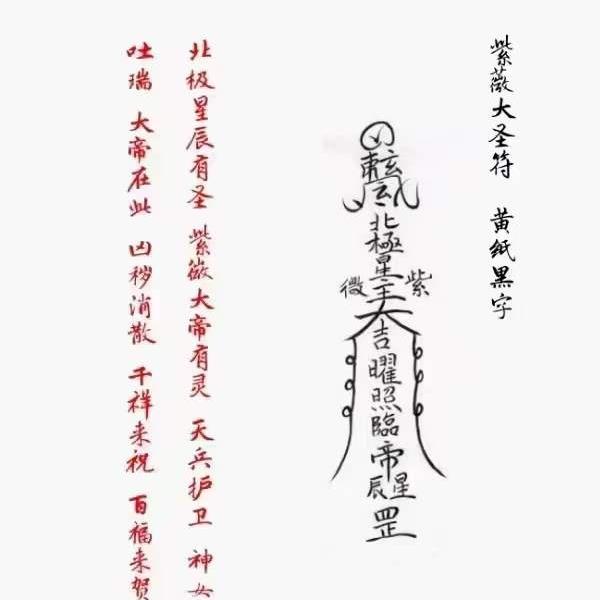 紫薇大圣符 黄纸黑字
北極星主
紫微
大
吉曜照臨
帝
星辰
罡
北极星辰有圣 紫薇大帝有灵 天兵护卫 神女
吐瑞 大帝在此 凶秽消散 千祥来祝 百福来贺